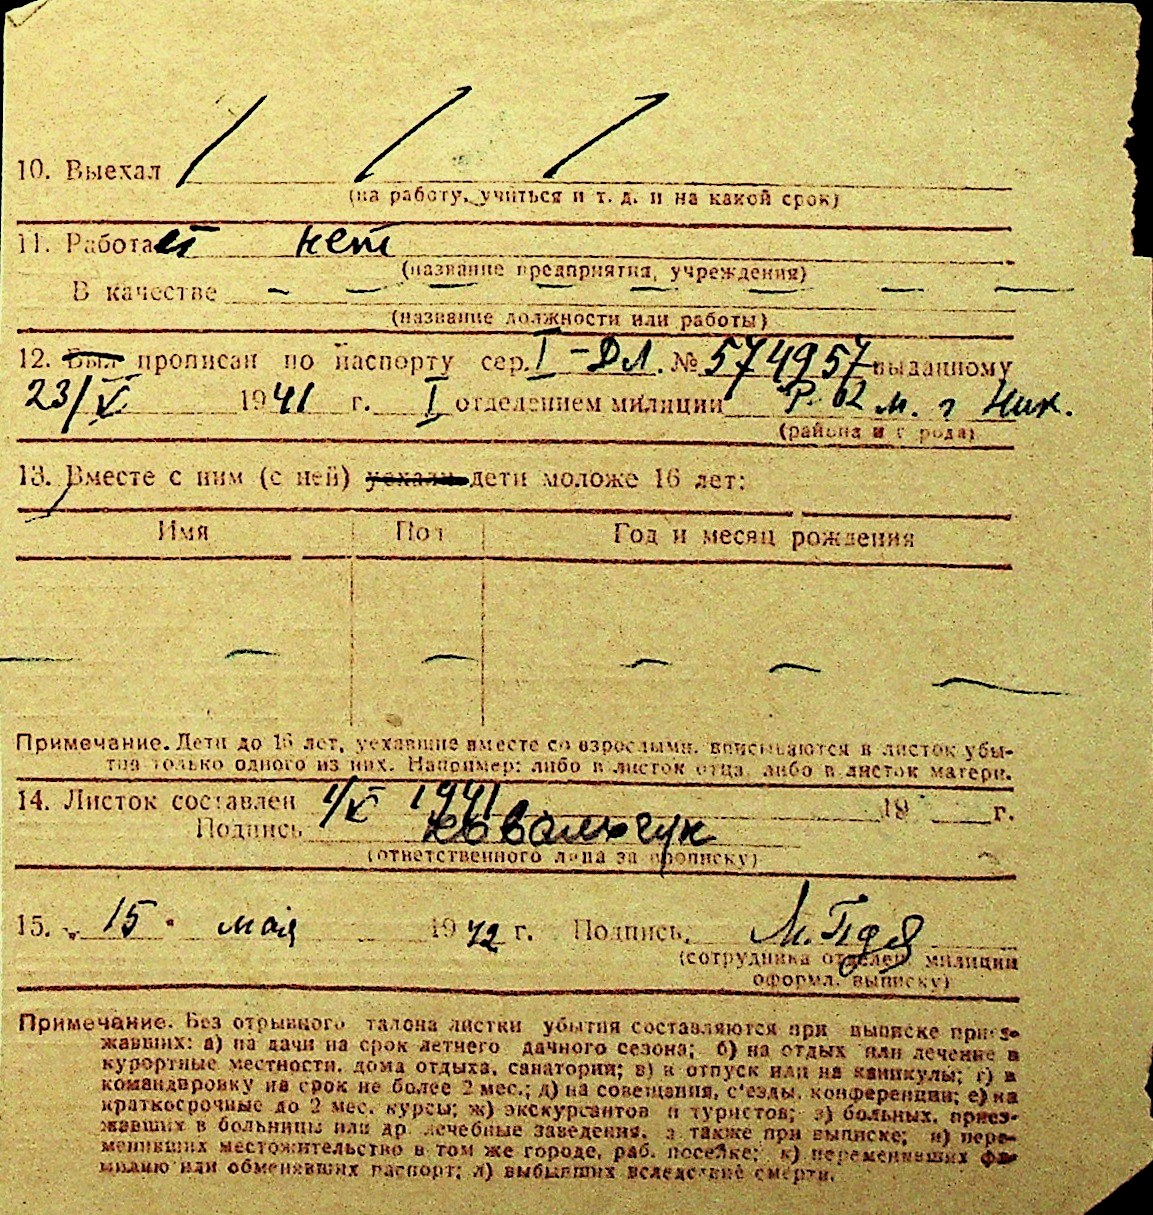 10. Выехал
(на работу, учиться и т. д. и на какой срок)
11. Работает нет
(название предприятия, учреждения)
В качестве
(название должности или работы)
12. Был прописан по паспорту сер. I-ДЛ. № 574957 выданному
23/V 1941 г. I отделением милиции г Ник.
(района и города)
13. Вместе с ним (с ней) уехали дети моложе 16 лет:
Имя Пол Год и месяц рождения
Примечание. Дети до 16 лет, уехавшие вместе со взрослыми, вписываются в листок убы-
тия только одного из них. Например: либо в листок отца, либо в листок матери.
14. Листок составлен 1941 19 г.
Подпись Ковальчук
(ответственного лица за прописку)
15. „ 15 " мая 1942 г. Подпись
(сотрудника отделен. милиции
оформл. выписку)
Примечание. Без отрывного талона листки убытия составляются при выписке приез-
жавших: а) на дачи на срок летнего дачного сезона; б) на отдых или лечение в
курортные местности, дома отдыха, санатории; в) в отпуск или на каникулы; г) в
командировку на срок не более 2 мес.; д) на совещания, с'езды, конференции; е) на
краткосрочные до 2 мес. курсы; ж) экскурсантов и туристов; з) больных, приез-
жавших в больницы или др. лечебные заведения, а также при выписке; и) пере-
менивших местожительство в том же городе, раб. поселке; к) переменивших фа-
милию или обменявших паспорт; л) выбывших вследствие смерти.